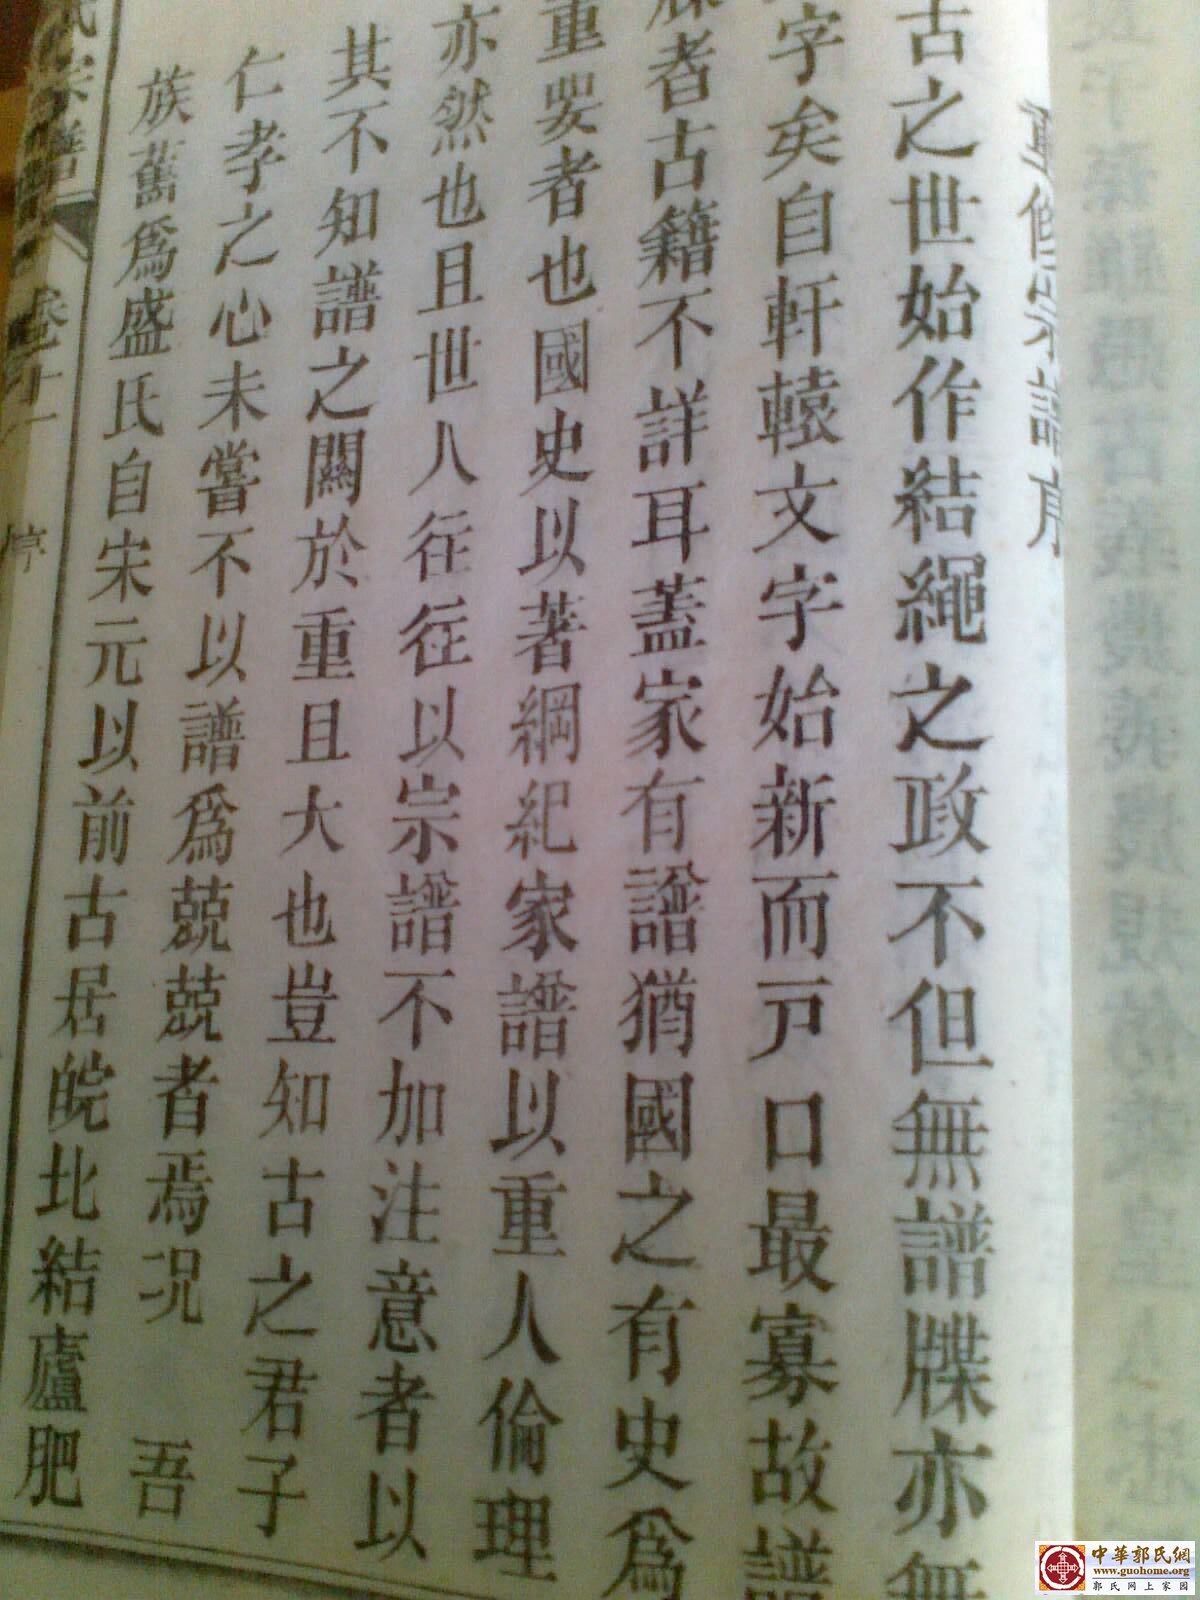 重修宗譜序
古之世始作結繩之政不但無譜牒亦無
字矣自軒轅文字始新而戸口最寡故譜
牒者古籍不詳耳蓋家有譜猶國之有史爲
重要者也國史以著綱紀家譜以重人倫理
亦然也且世人往往以宗譜不加注意者以
其不知譜之關於重且大也豈知古之君子
仁孝之心未嘗不以譜爲兢兢者焉况 吾
族舊爲盛氏自宋元以前古居皖北結廬肥
氏宗譜 卷十一 序
中華郭氏網
www.guohome.org
郭氏网上家园